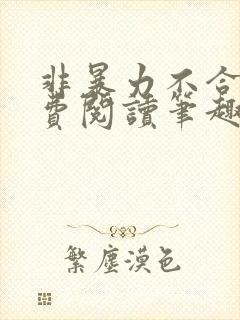 非暴力不合
費閱讀筆趣
繁塵漠色